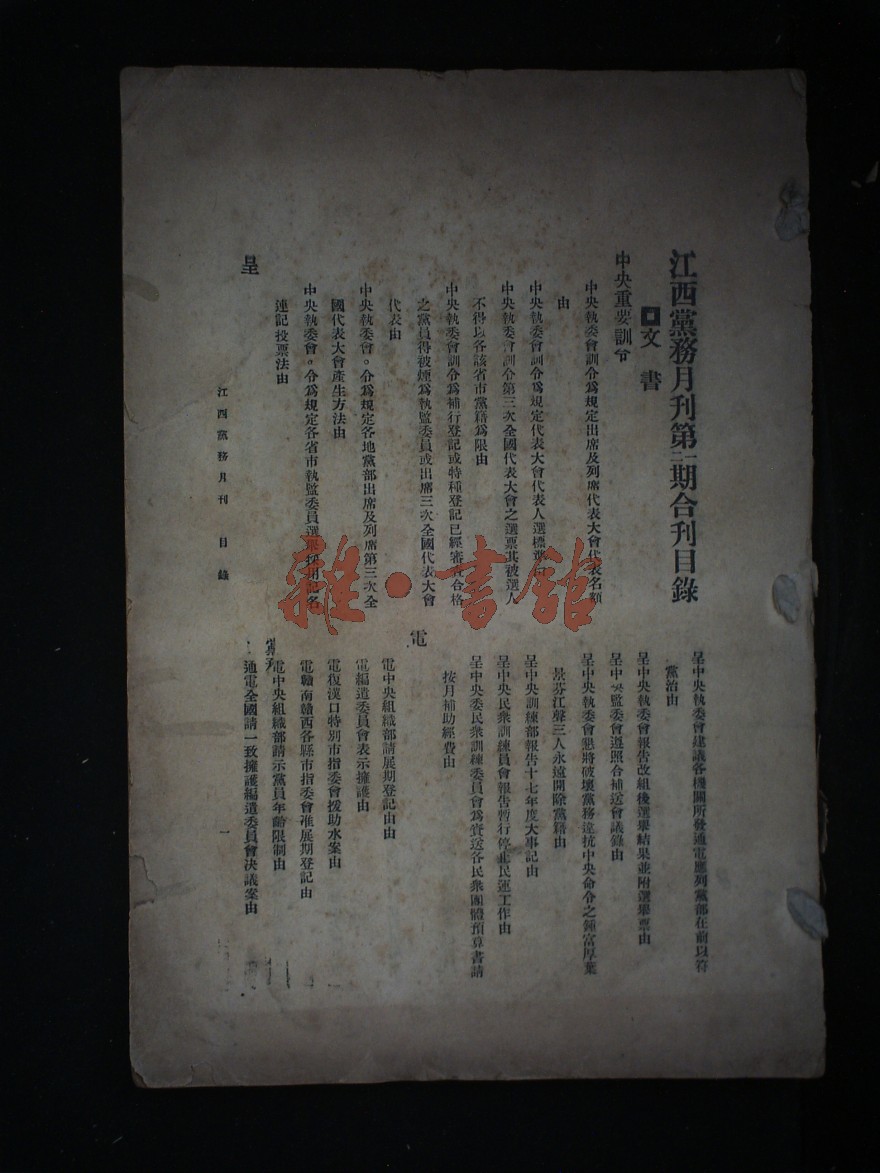 江西黨務月刊第一二期合刊目錄
文書
中央重要訓令
中央執委會訓令爲規定出席及列席代表大會代表名額
由
中央執委會訓令爲規定代表大會代表人選標準由
中央執委會訓令第三次全國代表大會之選票其被選人
不得以各該省市黨籍爲限由
中央執委會訓令爲補行登記或特種登記已經審查合格
之黨員得被選爲執監委員或出席三次全國代表大會
代表由
中央執委會。令爲規定各地黨部出席及列席第三次全
國代表大會產生方法由
中央執委會。令爲規定各省市執監委員選舉採用記名
連記投票法由
呈
呈中央執委會建議各機關所發通電應列黨部在前以符
黨治由
呈中央執委會報告改組後選舉結果並附選舉票由
呈中央監委會遵照合補送會議錄由
呈中央執委會懇將破壞黨務違抗中央命令之鍾富厚葉
景芬江聲三人永遠開除黨籍由
呈中央訓練部報告十七年度大事記由
呈中央民衆訓練員會報告暫行停止民運工作由
呈中央委民衆訓練委員會爲賚送各民衆團體預算書請
按月補助經費由
電
電中央組織部請展期登記由由
電編遣委員會表示擁護由
電復漢口特別市指委會援助水案由
電贛南贛西各縣市指委會准展期登記由
電中央組織部請示黨員年齡限制由
通電全國請一致擁護編遣委員會決議案由
江西黨務月刊 目錄
一
雜·書館